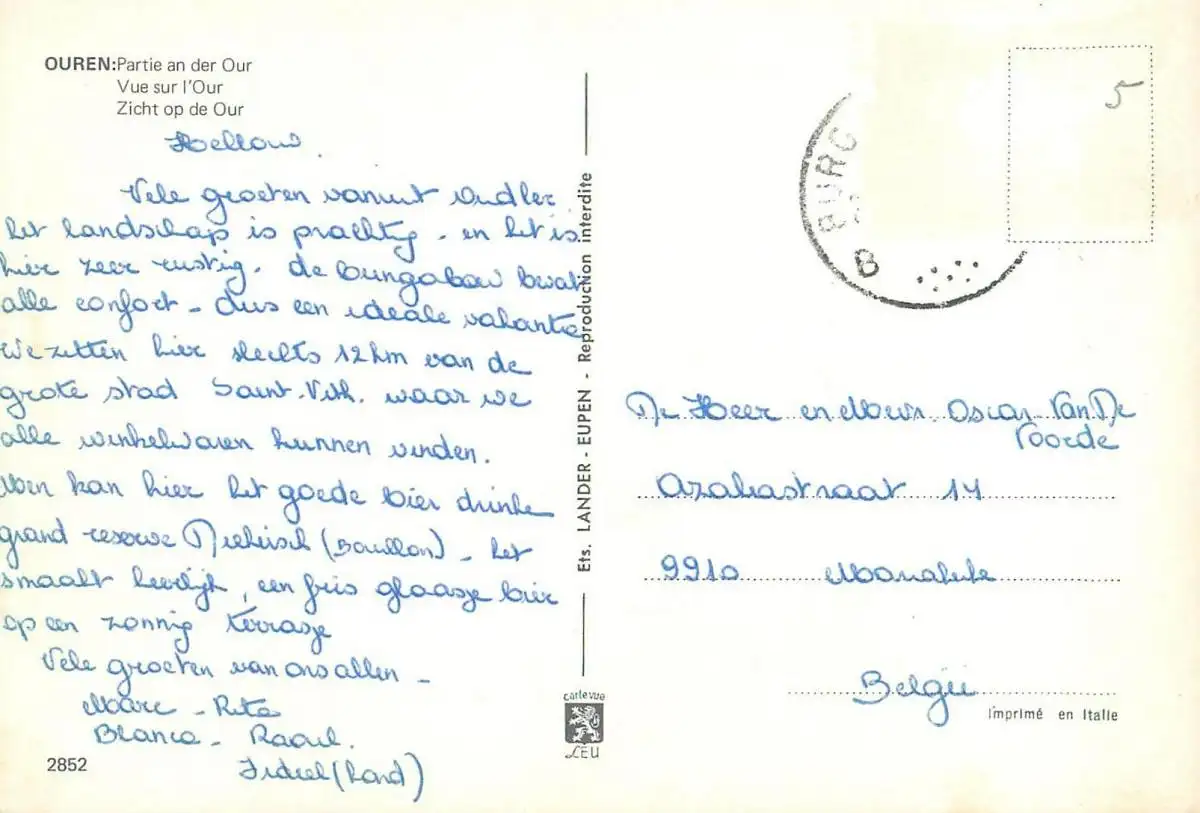 OUREN: Partie an der Our
Vue sur l'Our
Zicht op de Our
Hellow.
Vele groeten vanuit Oudler
het landschap is prachtig - en het is
hier zeer rustig. de bungabow bevat
alle confort - dus een ideale vakantie
We zitten hier slechts 12 km van de
grote stad Saint-Vith. waar we
alle winkelwaren kunnen vinden.
Men kan hier het goede bier drinken
grand reserve (Bouillon) - het
smaakt heerlijk, een fris glaasje bier
op een zonnig terrasje
Vele groeten van ons allen -
Marc - Rita
Blanca - Raoul.
(hond)
2852
Ets. LANDER - EUPEN - Reproduction interdite
carlevue
LEU
5
BURG
B
De Heer en Mevr. Oscar Van De
Voorde
Azaleastraat 14
9910 Mariakerke
België
Imprimé en Italie